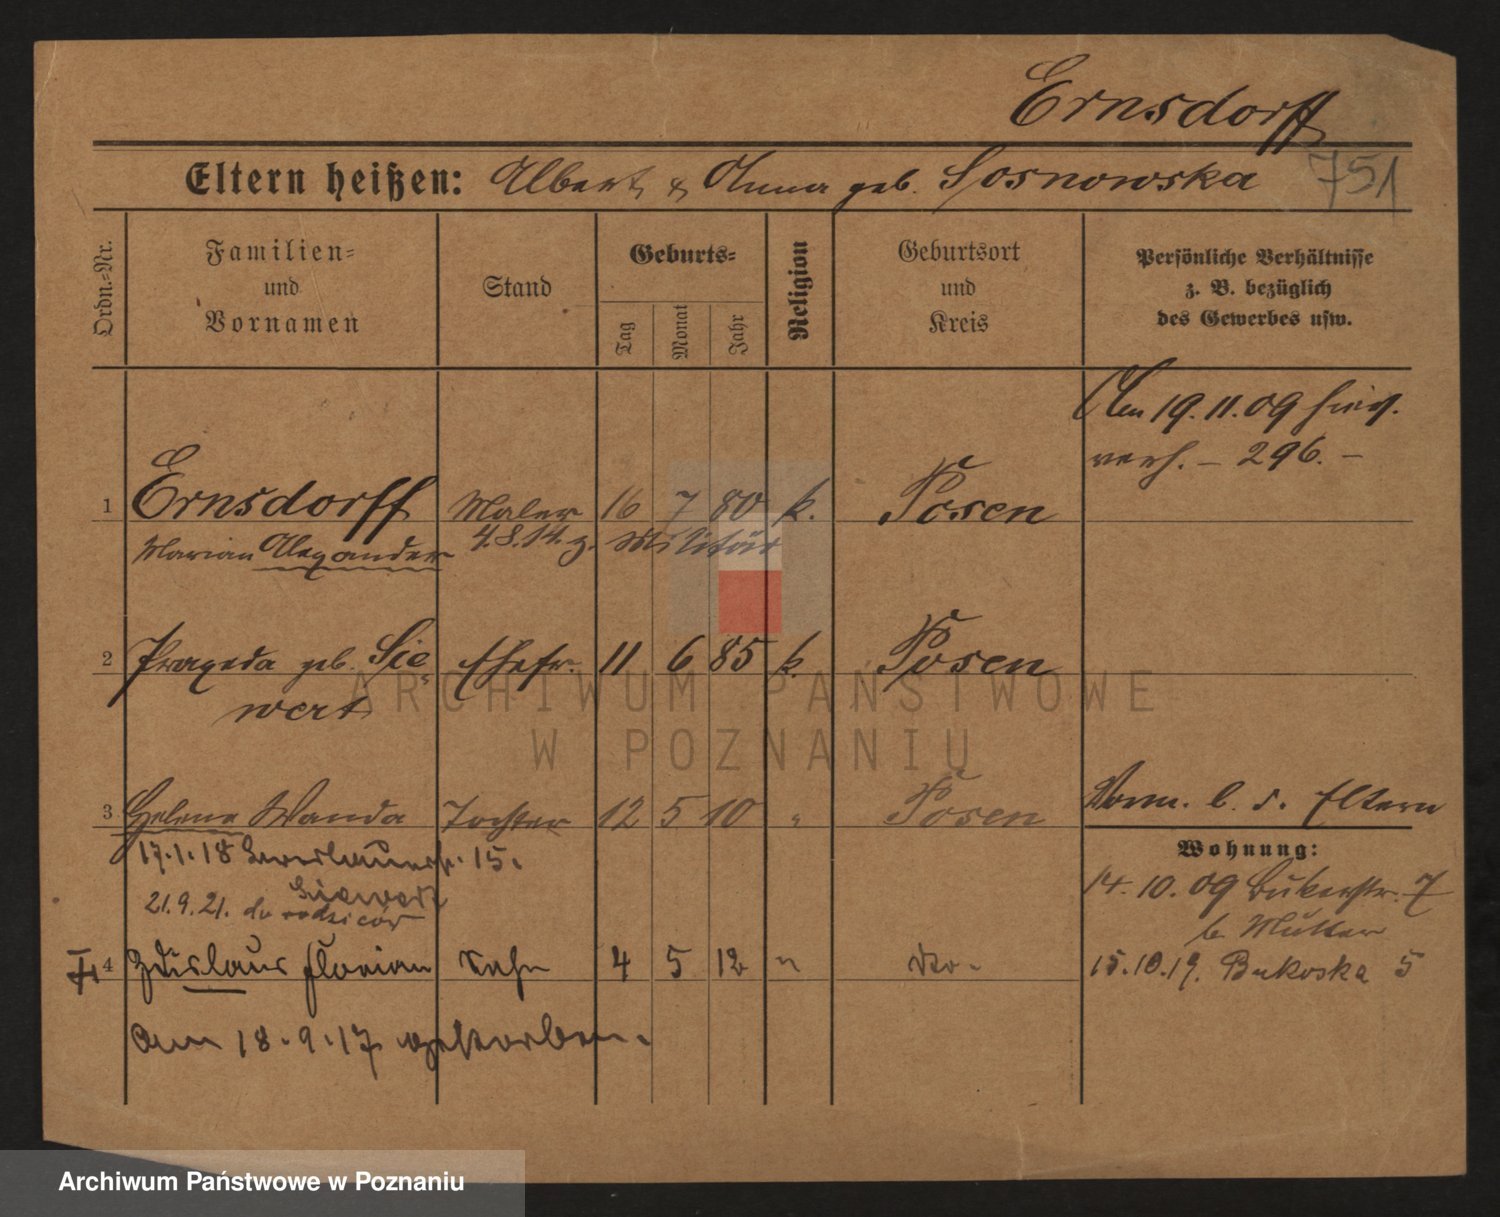 Ernsdorff
Eltern heißen: Albert & Anna geb. Sosnowska
751
Ordn.=Nr.
Familien=
und
Vornamen
Stand
Geburts=
Tag
Monat
Jahr
Religion
Geburtsort
und
Kreis
Persönliche Verhältnisse
z. B. bezüglich
des Gewerbes usw.
19.11.09
verh. – 296. –
1 Ernsdorff Maler 16 7 80 k. Posen
Marian Alexander 4.8.14. z. Militär
2 Praxeda geb. Sie= Ehefr. 11 6 85 k. Posen
wert
3 Helene Wanda Tochter 12 5 10 " Posen
Wohn. b. d. Eltern
17.1.18 15.
Siewert
21.9.21. do rodziców
Wohnung:
14.10.09 Bukerstr. 7
b. Mutter
15.10.19. Bukoska 5
4 Zdislaus Florian Sohn 4 5 12 " do.
am 18.9.17 gestorben.
ARCHIWUM PAŃSTWOWE
W POZNANIU
Archiwum Państwowe w Poznaniu